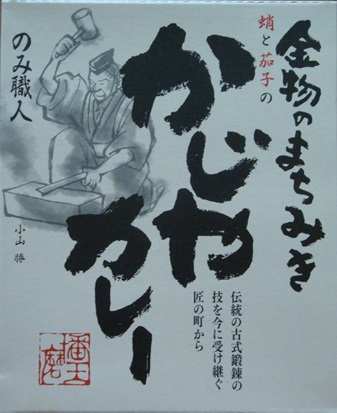 金物のまちみき
蛸と茄子の
かじや
カレー
のみ職人
小山 勝
伝統の古式鍛錬の
技を今に受け継ぐ
匠の町から
播磨